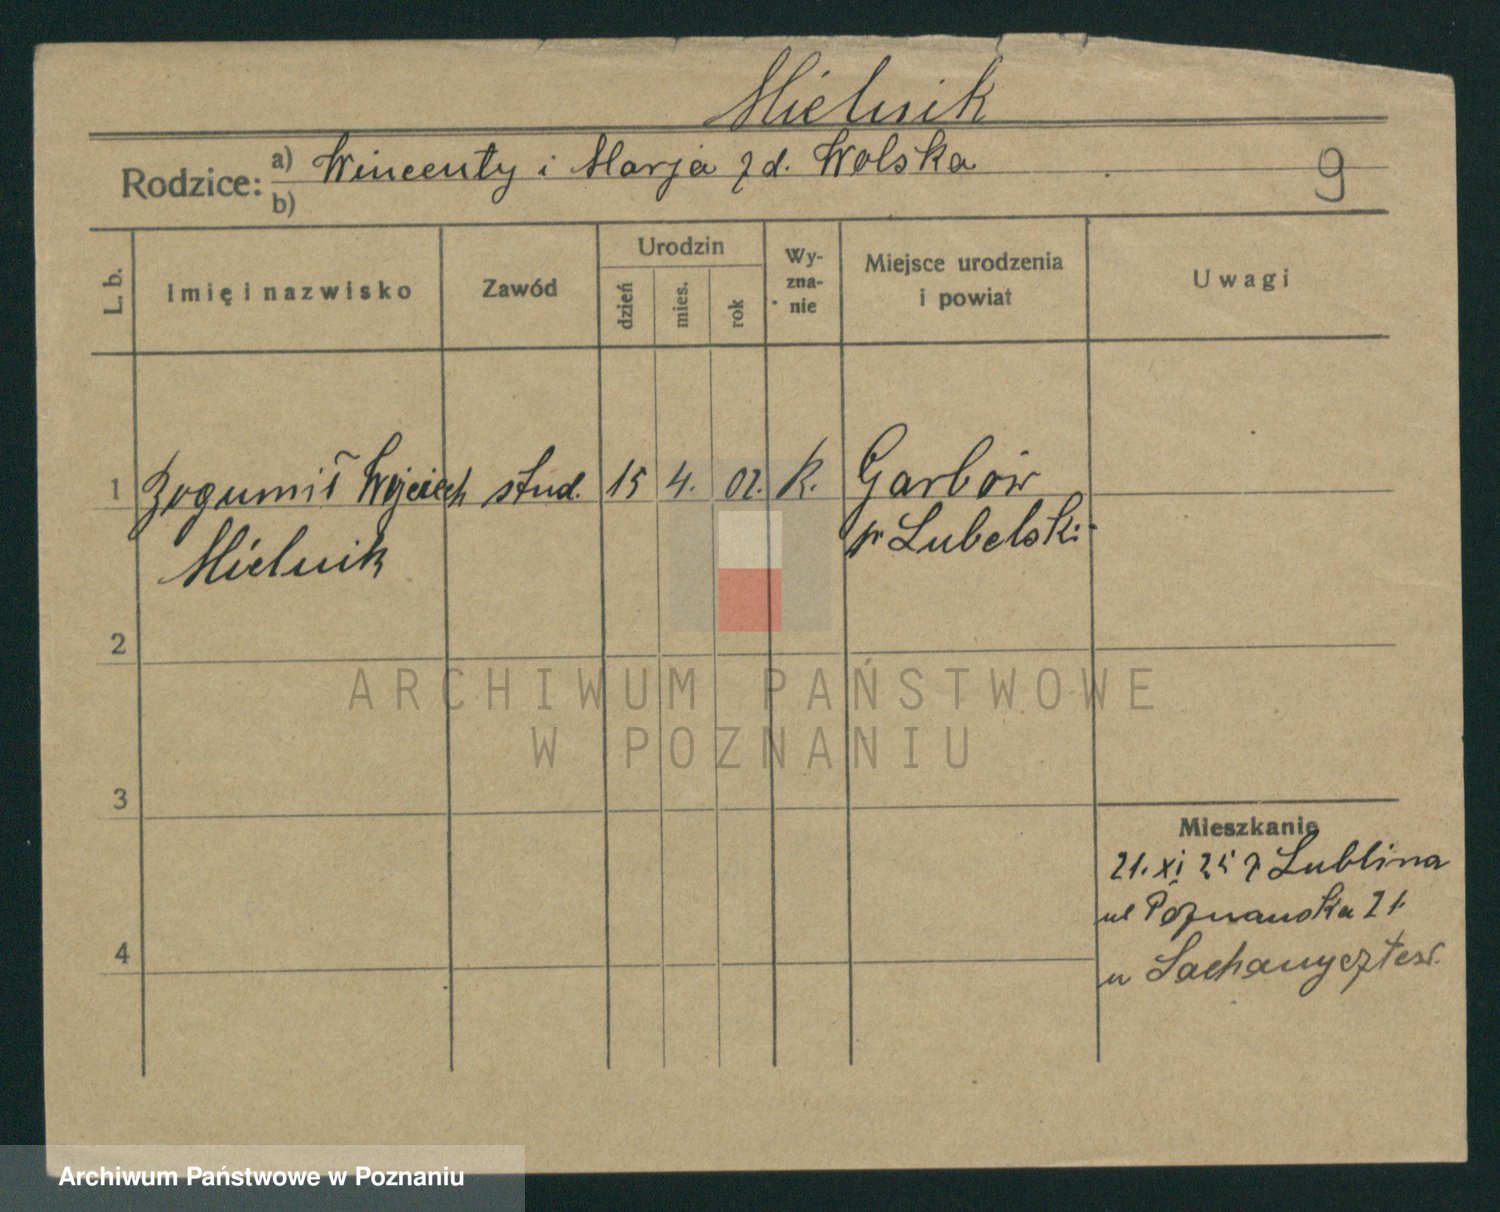 Mielnik
Rodzice: a) Wincenty i Marja z d. Wolska
b)
9
L. b.
Imię i nazwisko
Zawód
Urodzin
dzień
mies.
rok
Wy-
zna-
nie
Miejsce urodzenia
i powiat
Uwagi
1 Bogumił Wojciech stud. 15 4. 02. K. Garbów
Mielnik p. Lubelski
2
3
4
Mieszkanie
21. XI 25 z Lublina
ul Poznanska 21
u
ARCHIWUM PAŃSTWOWE
W POZNANIU
Archiwum Państwowe w Poznaniu